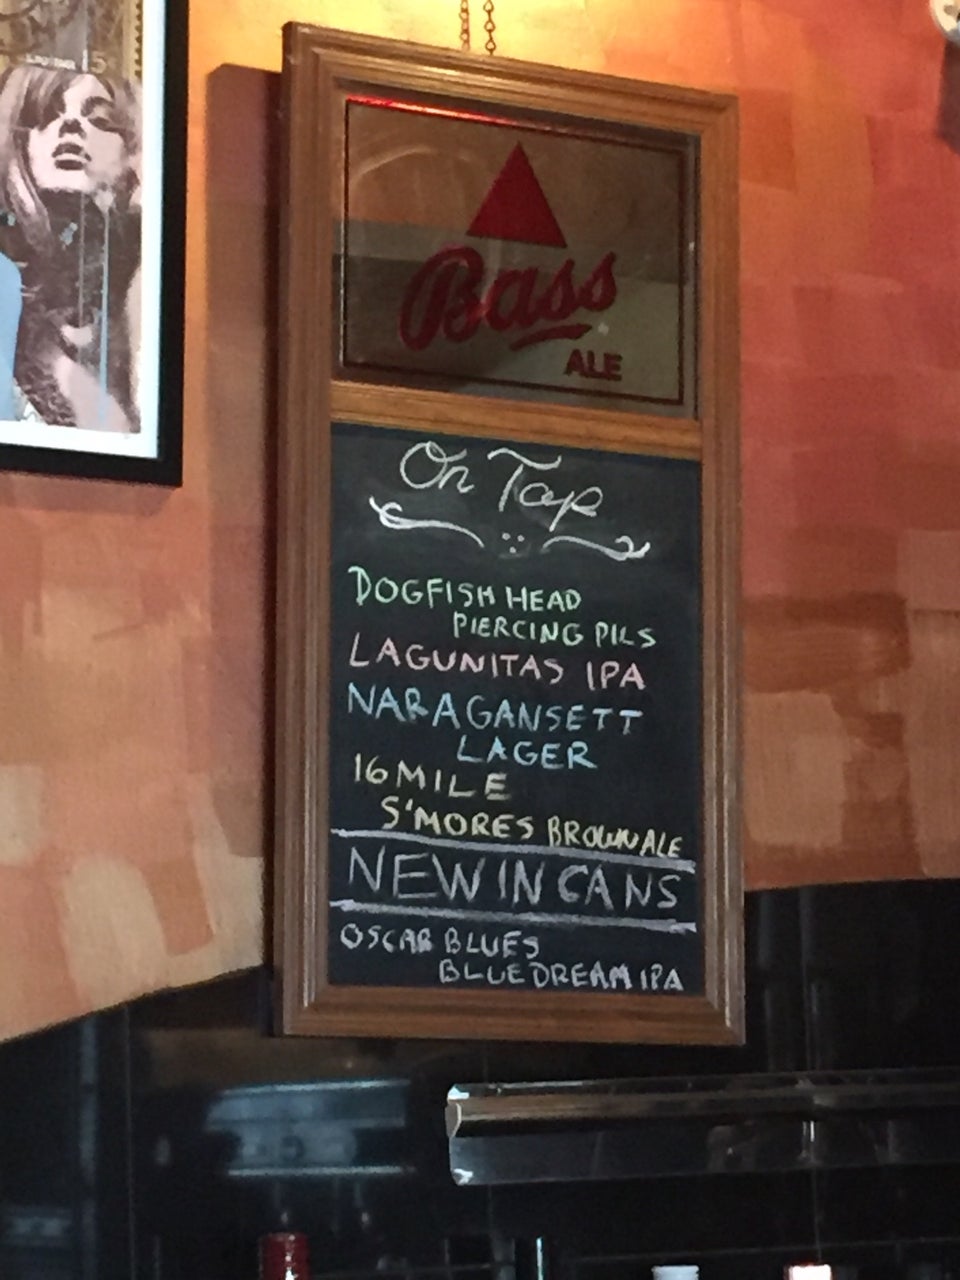 Bass
ALE
On Tap
DOGFISH HEAD
PIERCING PILS
LAGUNITAS IPA
NARAGANSETT
LAGER
16 MILE
S'MORES BROWN ALE
NEW IN CANS
OSCAR BLUES
BLUE DREAM IPA